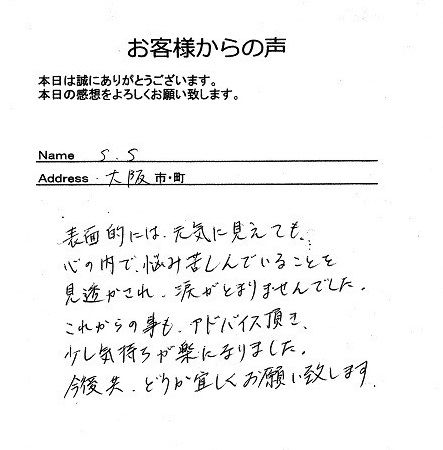 お客様からの声
本日は誠にありがとうございます。
本日の感想をよろしくお願い致します。
Name S.S
Address 大阪 市・町
表面的には、元気に見えても、
心の内で、悩み苦しんでいることを
見透かされ、涙がとまりませんでした。
これからの事も、アドバイス頂き、
少し気持ちが楽になりました。
今後共、どうか宜しくお願い致します。